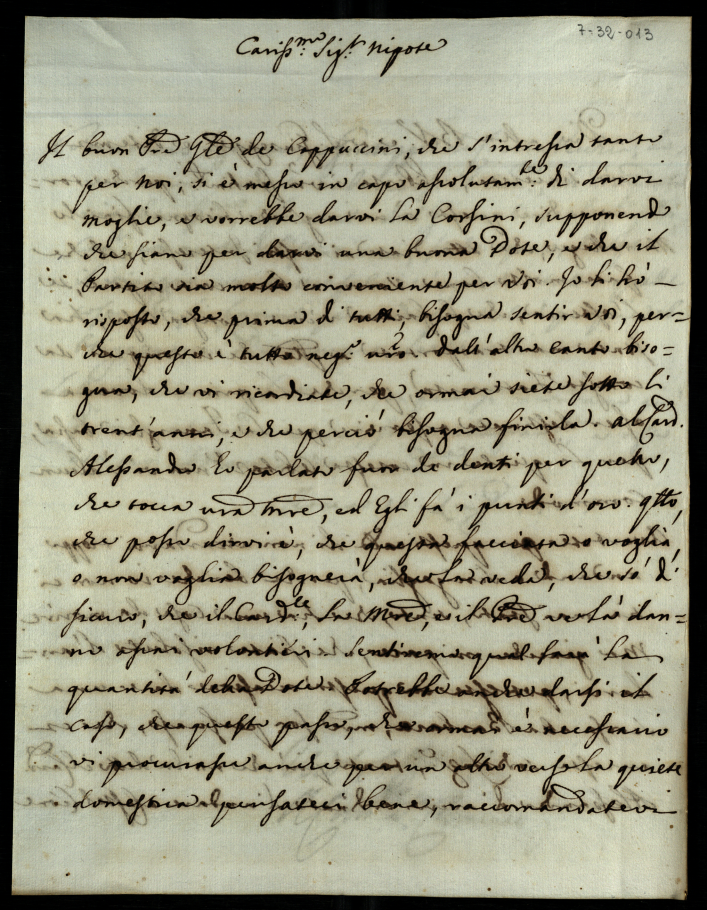 7-32-013
Cariss.mo Sig.r Nipote
Il buon Pre Gle de Cappuccini, che s'intressa tanto
per Noi, si è messo in capo assolutam.te di darvi
moglie, e vorrebbe darvi la Corsini, supponend
che siano per darvi una buona Dote, e che il
Partito sia molto conveniente per Voi. Io li hò
risposto, che prima di tutti, bisogna sentir Voi, per=
che questo è tutto neg.o vro. dall'altro canto biso=
gna, che vi ricordiate, che ormai siete sotto li
trent'anni, e che perciò bisogna finirla. al Card.
Alessandro ho parlato fuor de denti per quello,
che tocca vra Mre, ed Egli fà i punti d'oro. qtto,
che posso dirvi è, che questa faccenda o voglia,
o non voglia bisognerà, che la veda, che sò di
sicuro, che il Card.le, la Mre, e il Pre ve la dan=
no assai volontieri. Sentiremo qual sarà la
quantità della Dote. Potrebbe anche darsi il
caso, che questo passo, che ormai è necessario
vi procurasse anche per un altro verso la quiete
domestica. pensateci bene, raccomandatevi